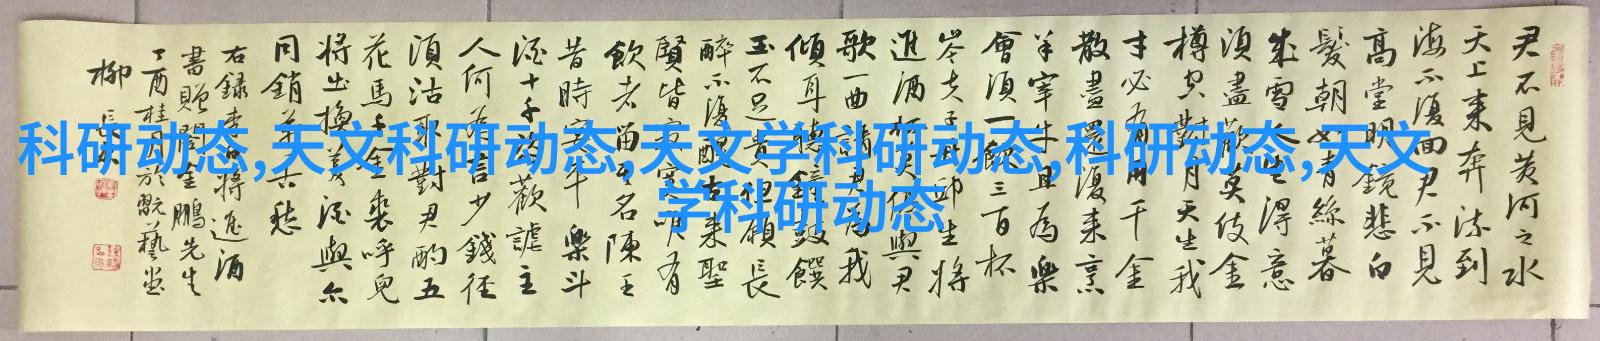 君不見黃河之水
天上来奔流到
海不復回君不見
高堂明鏡悲白
髮朝如青絲暮
成雪人生得意
須盡歡莫使金
樽空對月天生我
才必有用千金
散盡還復来烹
羊宰牛且為樂
會須一飲三百杯
岑夫子丹邱生將
進酒杯莫停與君
歌一曲請君為我
傾耳聽鐘鼓饌
玉不足貴但願長
醉不復醒古来聖
賢皆寂寞唯有
飲者留其名陳王
昔時宴平樂斗
酒十千恣歡謔主
人何為言少錢径
須沽取對君酌五
花馬千金裘呼兒
將出換美酒與尔
同銷萬古愁
右録李白將進酒
書贈閆金鵬先生
丁酉桂月於翫藝堂
柳長
科研动态,天文科研动态,天文学科研动态,科研动态,天文
学科研动态